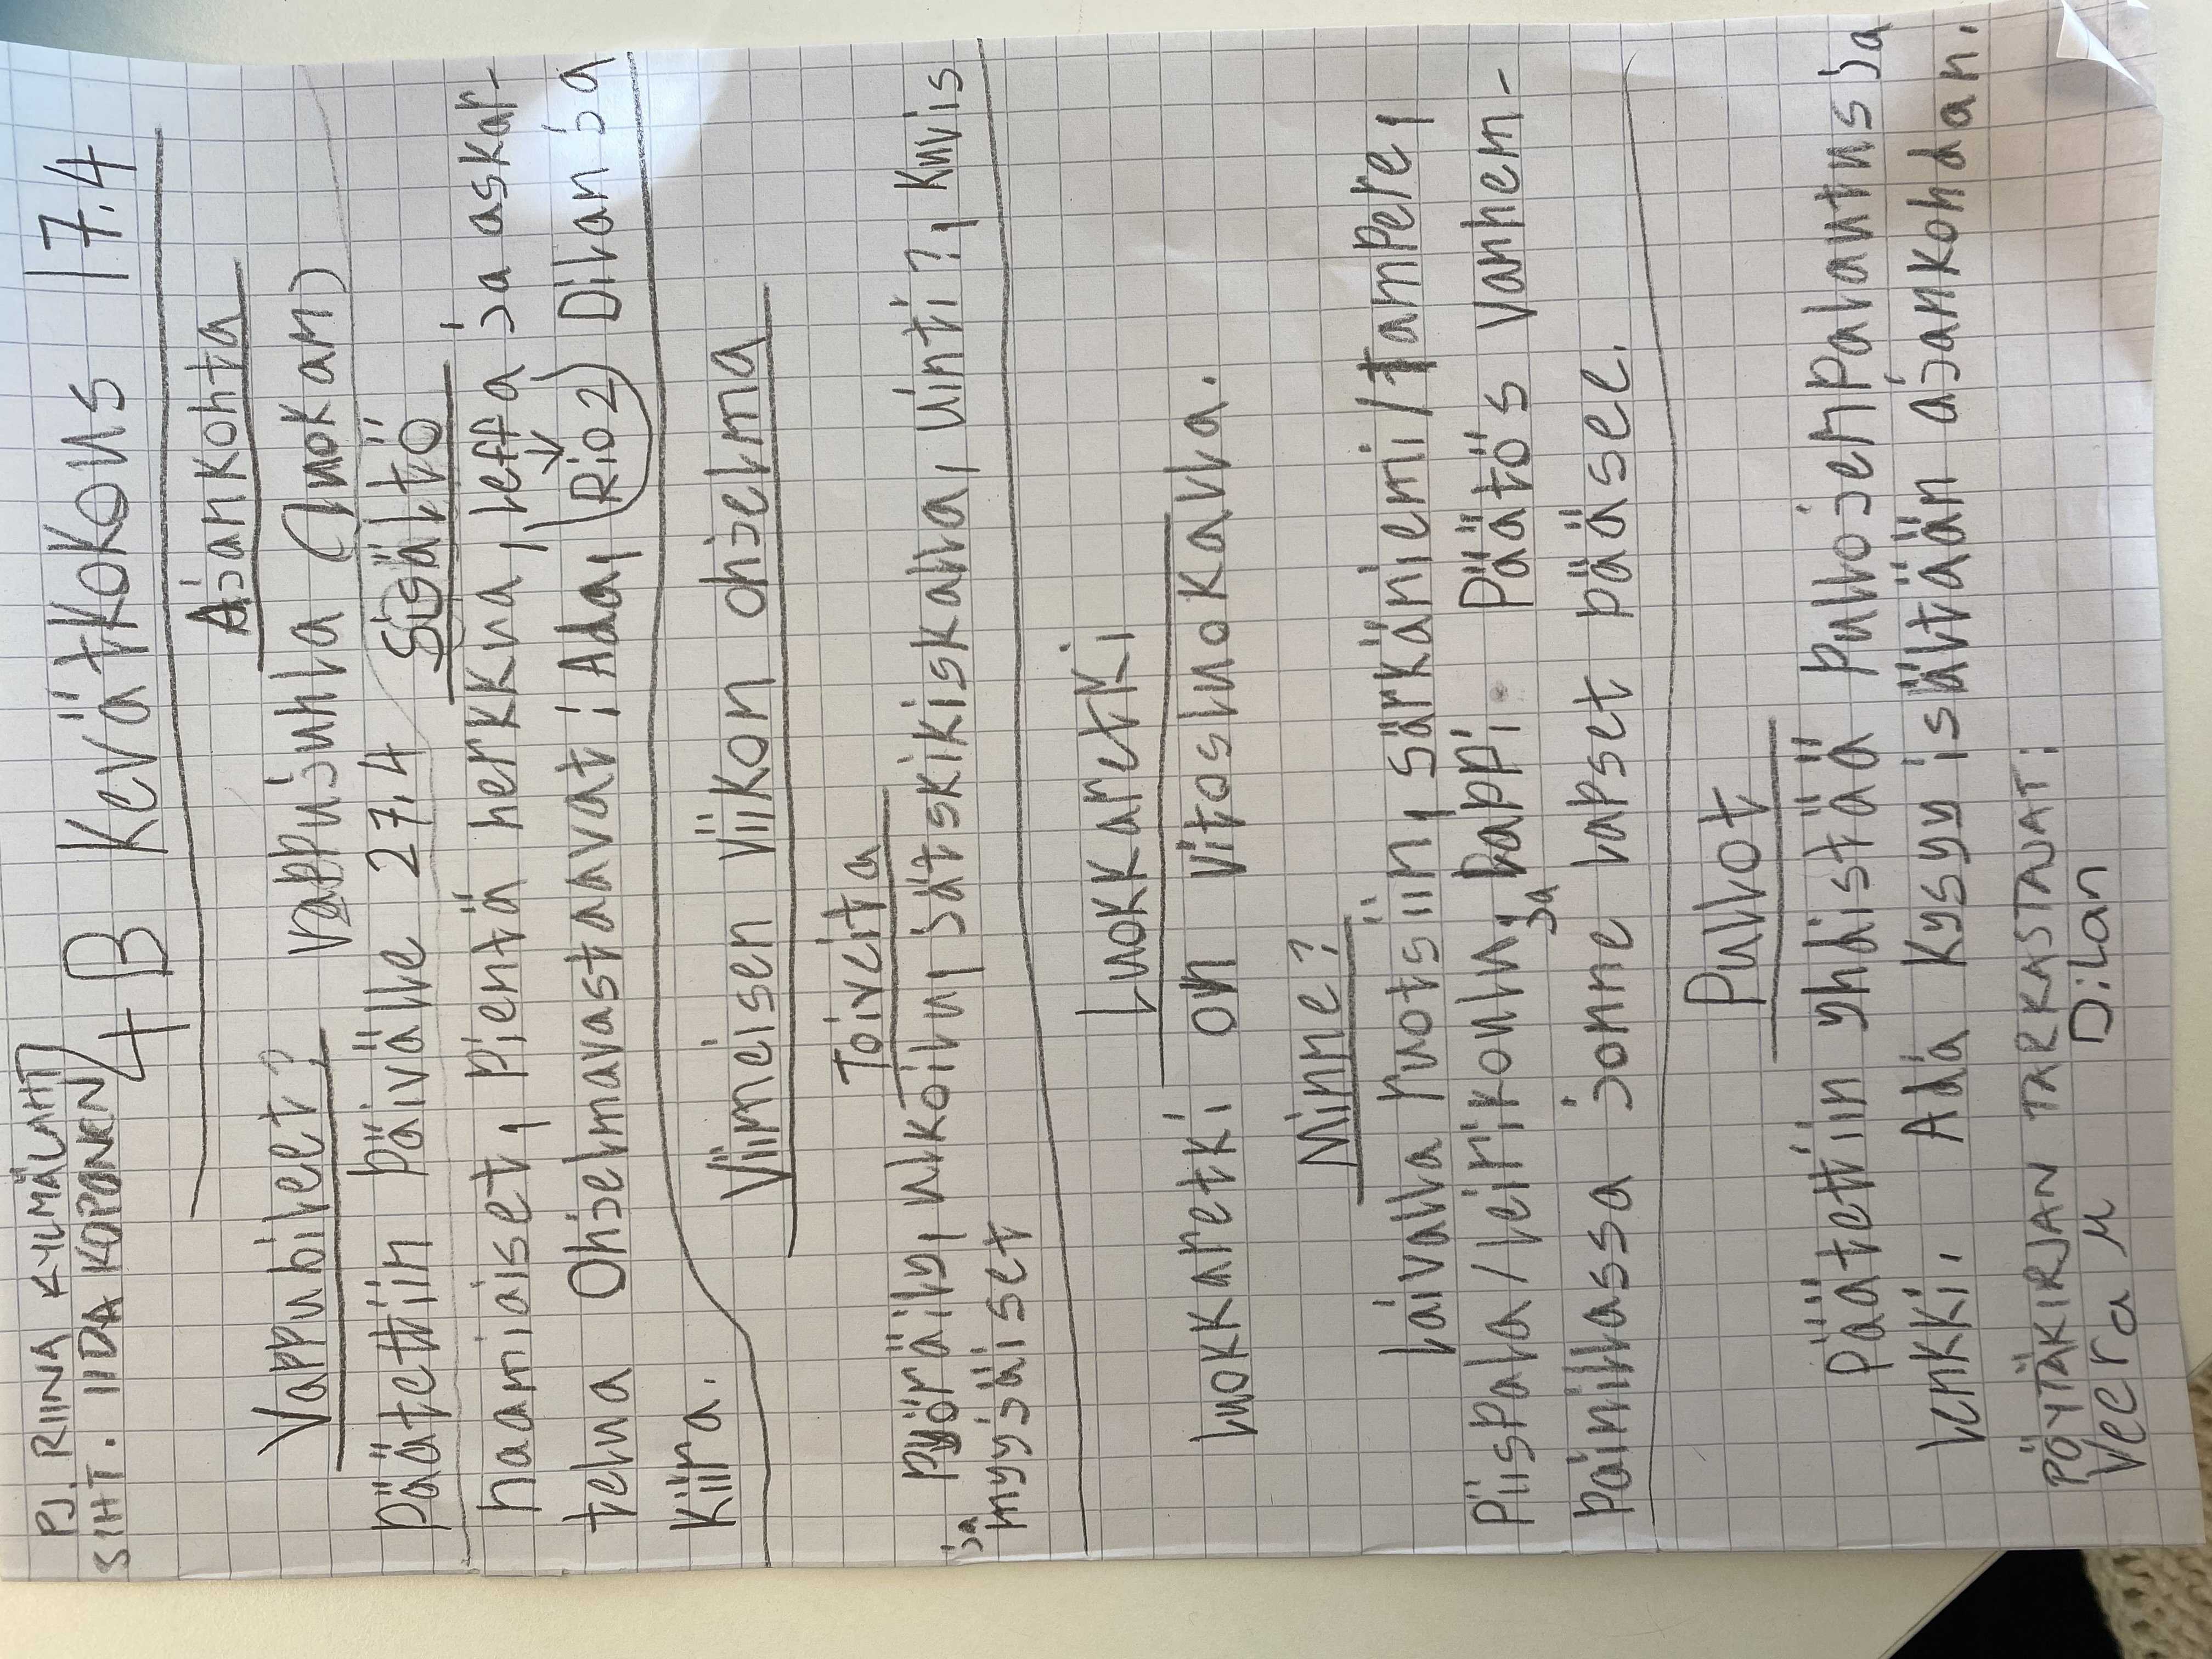 PJ. RIINA KYLMÄLAHTI
SIHT. IIDA KOPONEN
4B Kevätkokous 17.4
Ajankohta
Vappubileet? Vappujuhla (luokan)
Päätettiin päivälle 27.4 Sisältö
naamiaiset, pientä herkkua, leffa ja askar-
telua Ohjelmavastaavat: Ada, (Rio 2) Dilan ja
Kiira.
Viimeisen viikon ohjelma
Toiveita
Pyöräily, ulkoilu, jätskikiskalla, uinti?, kuvis
ja myyjäiset
Luokkaretki
Luokkaretki on vitosluokalla.
Minne?
Laivalla ruotsiin, särkäniemi/tampere,
Piispala/leirikoulu, ja Pappi. Päätös vanhem-
painillassa jonne lapset pääsee.
Pullot
Päätettiin yhdistää pullojenpalautus ja
lenkki. Ada kysyy isältään ajankohdan.
PÖYTÄKIRJAN TARKASTANAT:
Veera M Dilan